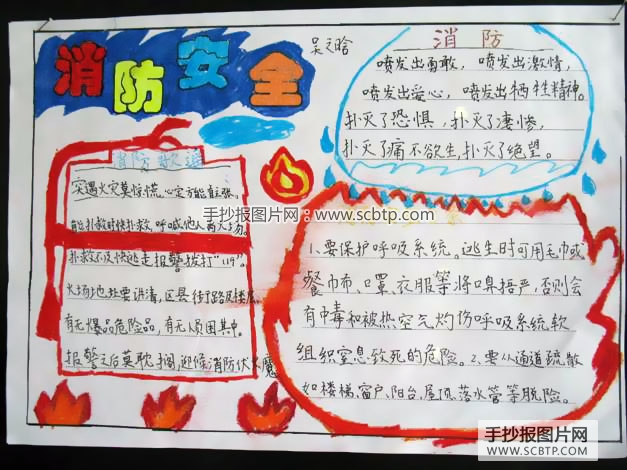 消防安全
吴之晗
消防
喷发出勇敢，喷发出激情，
喷发出爱心，喷发出牺牲精神。
扑灭了恐惧，扑灭了凄惨，
扑灭了痛不欲生，扑灭了绝望。
消防歌谣
灾遇火灾莫惊慌，心定方能有主张。
扑救时快扑救，呼喊他人离火场。
扑救不及快逃走报警拨打"119"。
火场地址要讲清，区县街道路及楼房
有无爆品危险品，有无人员困其中。
报警之后莫耽搁，迎候消防伏火魔
手抄报图片网：www.scbtp.com
1、要保护呼吸系统。逃生时可用毛巾或
餐巾布、口罩、衣服等将口鼻捂严，否则会
有中毒和被热空气灼伤呼吸系统软
组织窒息致死的危险。2、要从通道疏散
如楼梯、窗户、阳台、屋顶、落水管等脱险。
手抄报图片网
SCBTP.COM